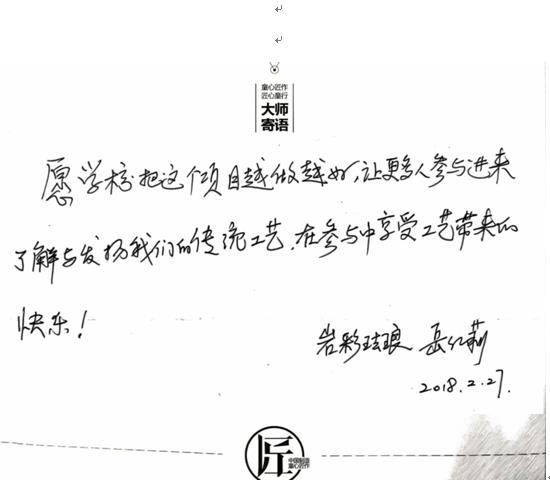 童心匠作
匠心童行
大师
寄语
愿学校把这个项目越做越好,让更多人参与进来
了解与发扬我们的传统工艺.在参与中享受工艺带来的
快乐!
岩彩珐琅 岳红莉
2018.2.27.
匠
中国制造
童心匠作